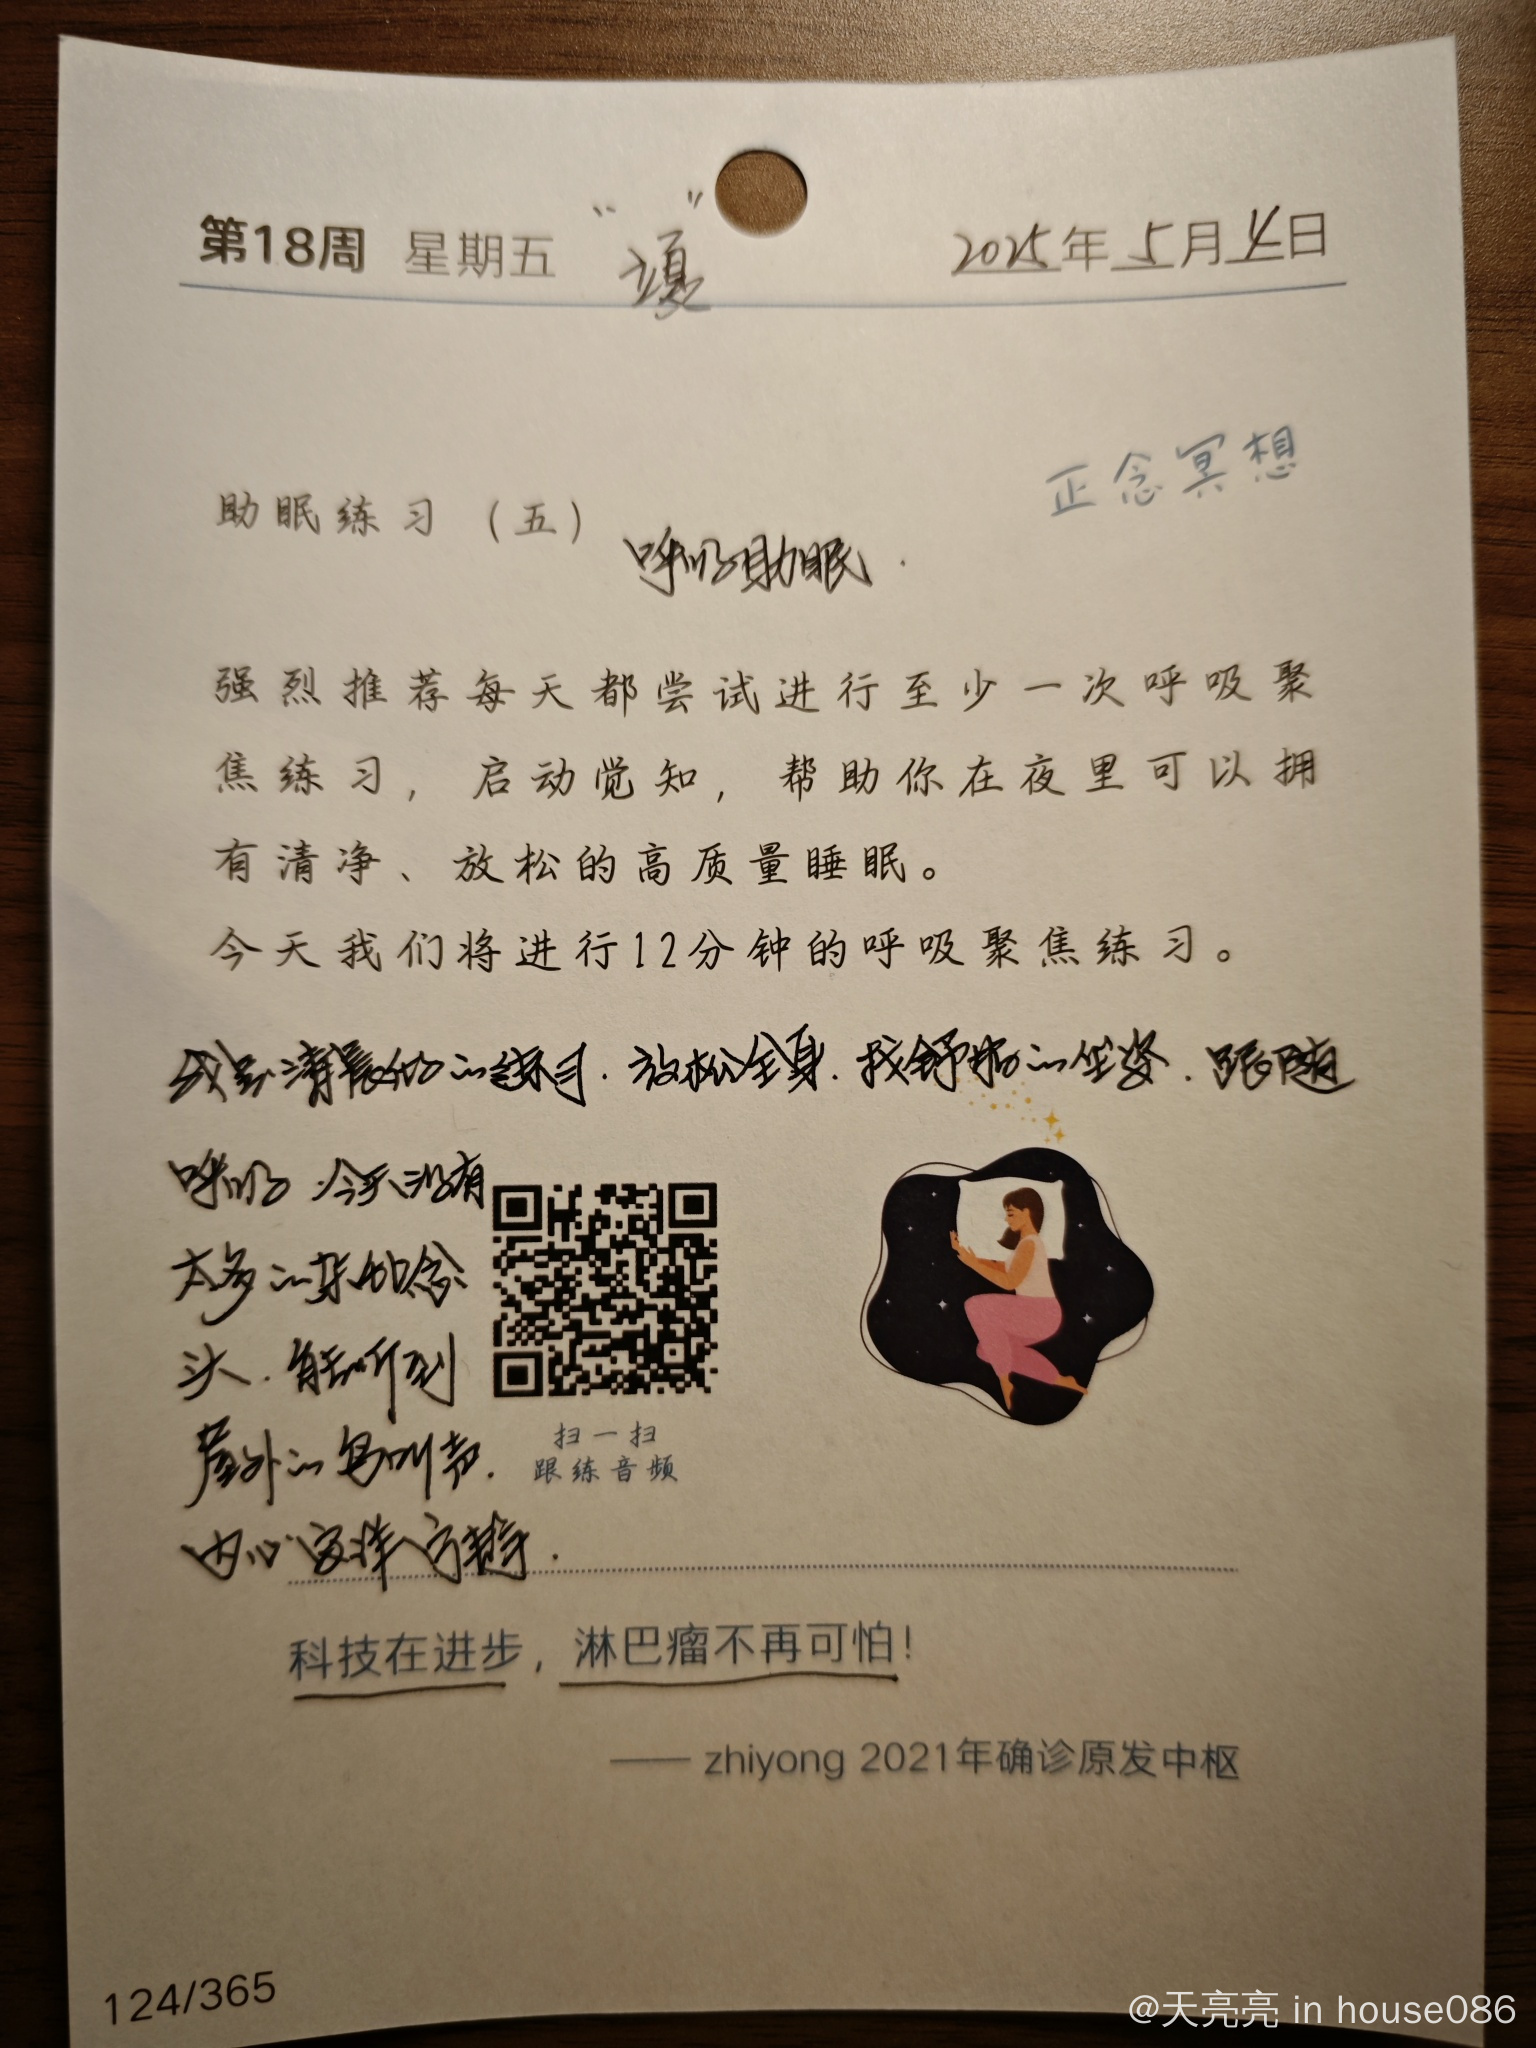 第18周 星期五 “立夏” 2025年5月4日
正念冥想
助眠练习（五） 呼吸助眠.
强烈推荐每天都尝试进行至少一次呼吸聚
焦练习，启动觉知，帮助你在夜里可以拥
有清净、放松的高质量睡眠。
今天我们将进行12分钟的呼吸聚焦练习。
我是清晨做的练习.放松全身.找舒服的坐姿.跟随
呼吸.今天没有
太多的其他念
头.能听到
屋外的鸟叫声.
内心安详宁静.
扫一扫
跟练音频
科技在进步，淋巴瘤不再可怕！
—— zhiyong 2021年确诊原发中枢
124/365
@天亮亮 in house086